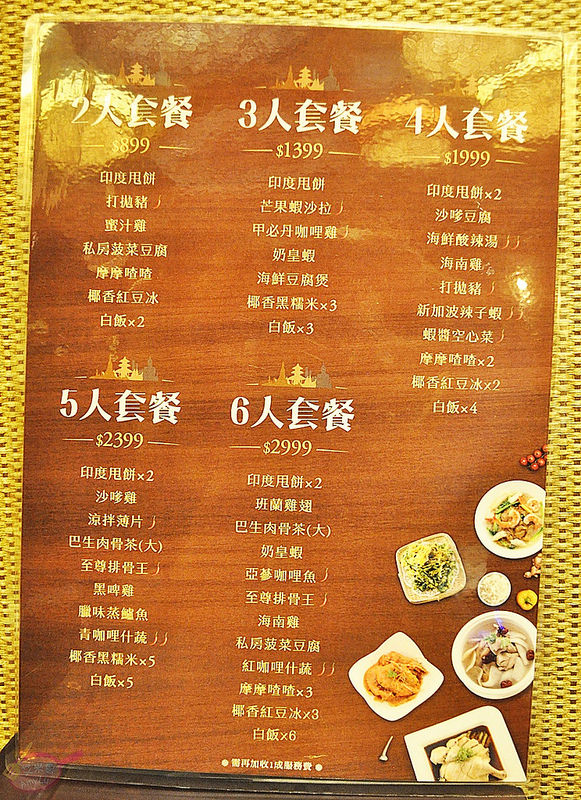 2人套餐
$899
印度甩餅
打拋豬
蜜汁雞
私房菠菜豆腐
摩摩喳喳
椰香紅豆冰
白飯×2
3人套餐
$1399
印度甩餅
芒果蝦沙拉
甲必丹咖哩雞
奶皇蝦
海鮮豆腐煲
椰香黑糯米×3
白飯×3
4人套餐
$1999
印度甩餅×2
沙嗲豆腐
海鮮酸辣湯
海南雞
打拋豬
新加波辣子蝦
蝦醬空心菜
摩摩喳喳×2
椰香紅豆冰×2
白飯×4
5人套餐
$2399
印度甩餅×2
沙嗲雞
涼拌薄片
巴生肉骨茶(大)
至尊排骨王
黑啤雞
臘味蒸鱸魚
青咖哩什蔬
椰香黑糯米×5
白飯×5
6人套餐
$2999
印度甩餅×2
班蘭雞翅
巴生肉骨茶(大)
奶皇蝦
亞蔘咖哩魚
至尊排骨王
海南雞
私房菠菜豆腐
紅咖哩什蔬
摩摩喳喳×3
椰香紅豆冰×3
白飯×6
●需再加收1成服務費●